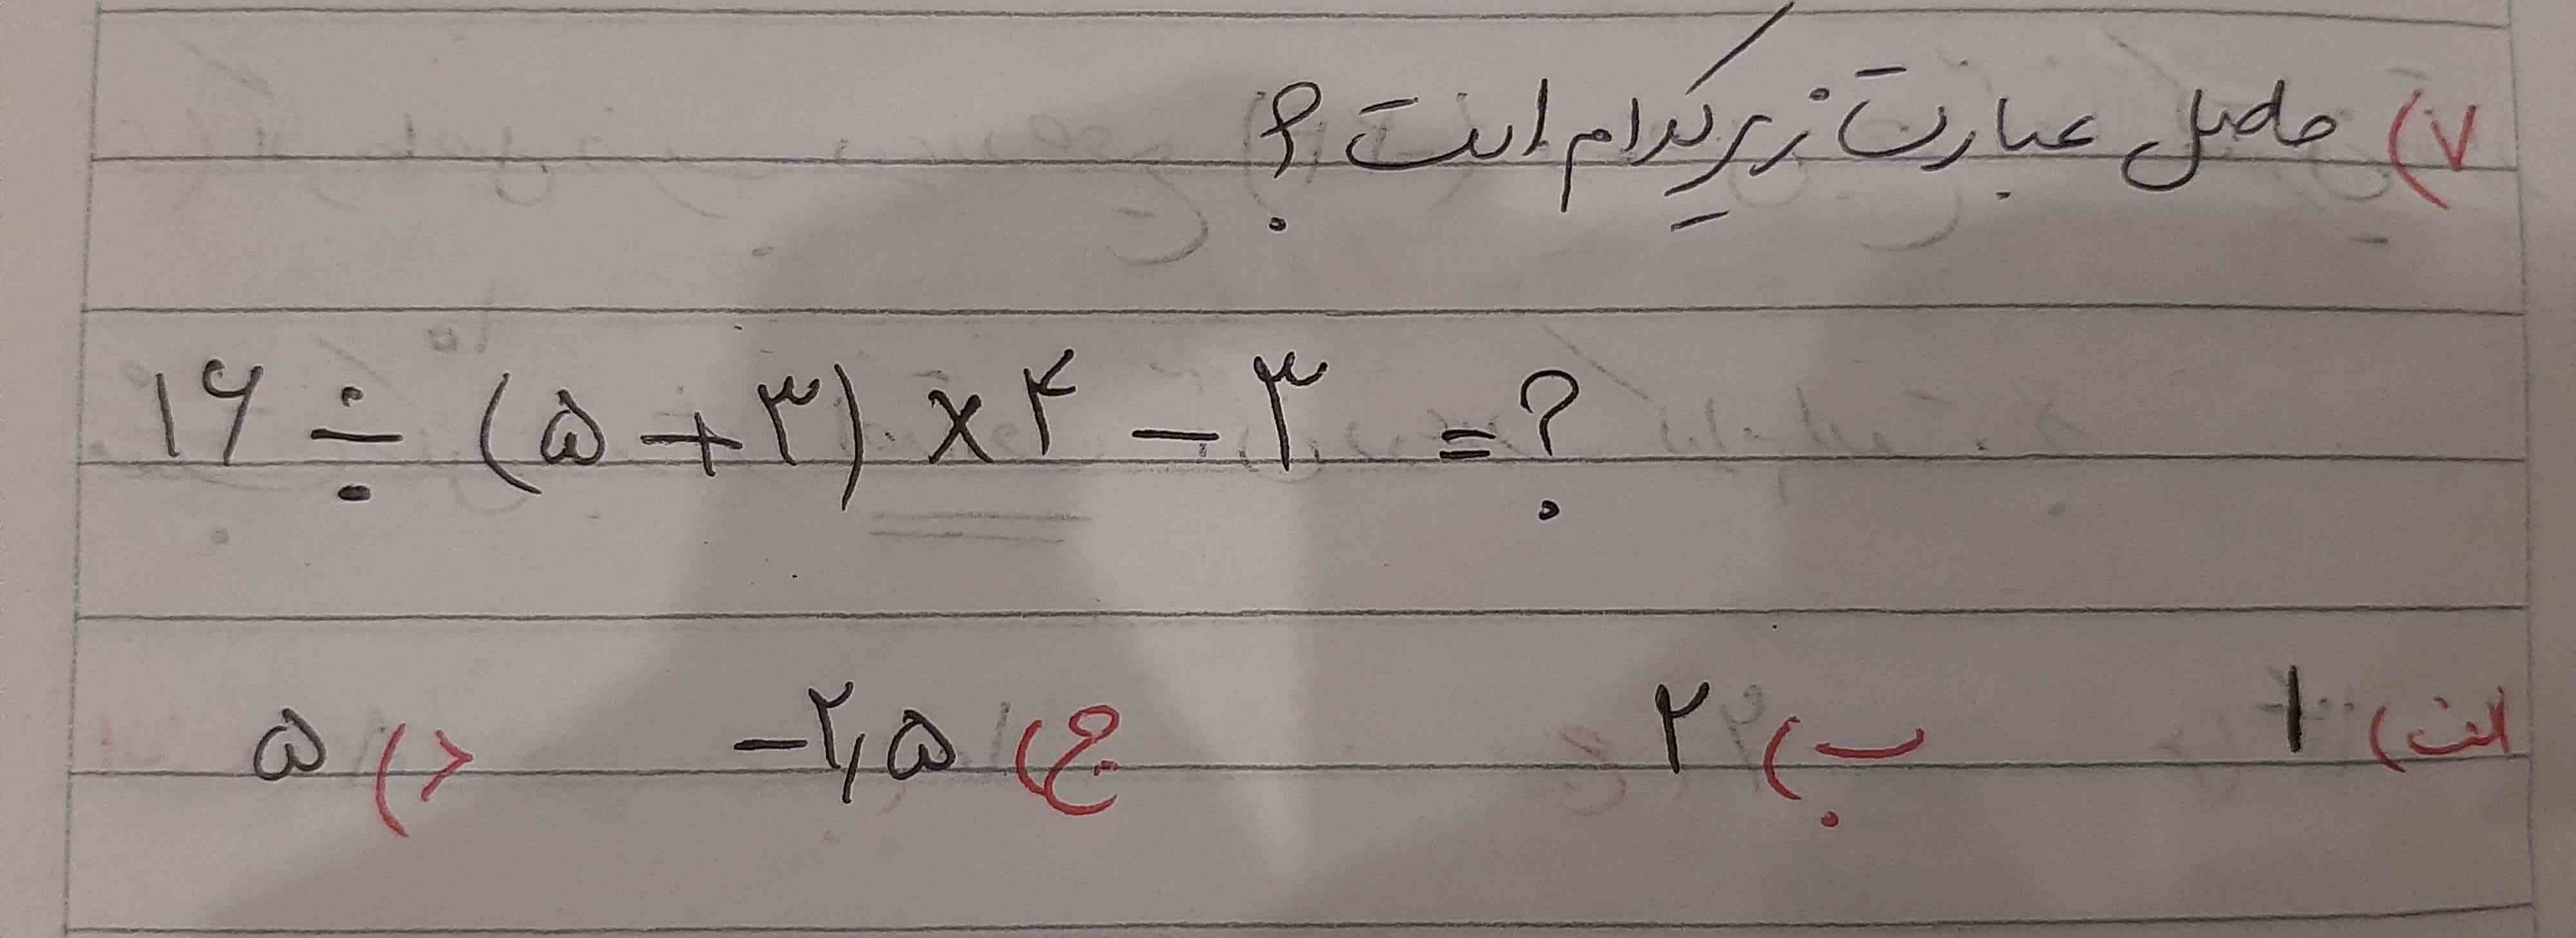 ۷) حاصل عبارت زیر کدام است؟
۱۶ ÷ (۵ + ۳) × ۴ − ۳ = ?
الف) ۱ ب) ۲ ج) −۲٫۵ د) ۵